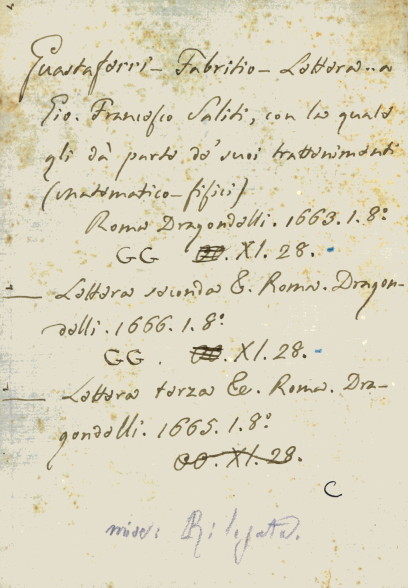 Guastaferri - Fabritio - Lettera a
Gio. Francesco Saliti, con la quale
gli dà parte de' suoi trattenimenti
(matematico-fisici)
Roma Dragondelli. 1663. 1. 8º
GG . XI. 28.
— Lettera seconda &. Roma. Dragon-
delli. 1666. 1. 8º
GG . XI. 28.
— Lettera terza &c. Roma. Dra-
gondelli. 1665. 1. 8º
OO. XI. 28.
C
misc: Rilegata.